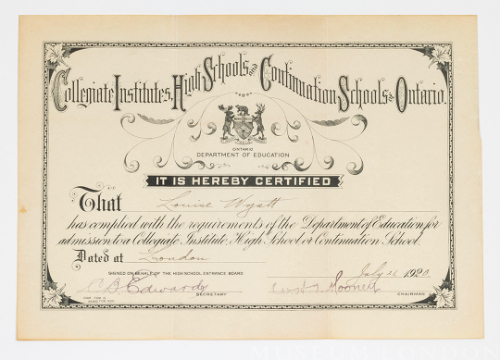 Collegiate Institutes, High Schools and Continuation Schools of Ontario.
ONTARIO
DEPARTMENT OF EDUCATION
IT IS HEREBY CERTIFIED
That Louise Wyatt
has complied with the requirements of the Department of Education for
admission to a Collegiate Institute, High School or Continuation School.
Dated at London
SIGNED ON BEHALF OF THE HIGH SCHOOL ENTRANCE BOARD July 1920.
C B Edwards
SECRETARY CHAIRMAN